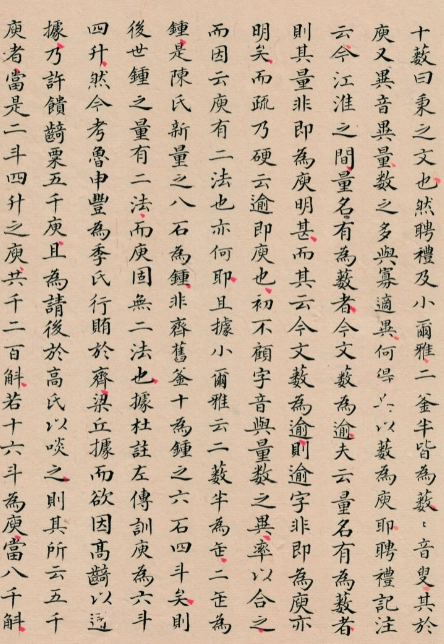 十藪曰秉之文也然聘禮及小爾雅二釜半皆為藪〻音叟其於
庾又異音異量数之多與寡適異何得以藪為庾耶聘禮記注
云今江淮之間量名有為藪者今文藪為逾夫云量名有為藪者
則其量非即為庾明甚而其云今文藪為逾則逾字非即為庾亦
明矣而疏乃硬云逾即庾也初不顧字音與量数之異率以合之
而因云庾有二法也亦何耶且據小爾雅云二藪半為缶二缶為
鍾是陳氏新量之八石為鍾非齊舊釜十為鍾之六石四斗矣則
後世鍾之量有二法而庾固無二法也據杜註左傳訓庾為六斗
四升然今考魯申豐為季氏行賄於齊梁丘據而欲因高齮以
據乃許饋齮粟五千庾且為請後於高氏以啖之則其所云五千
庾者當是二斗四升之庾共千二百斛若十六斗為庾當八千斛